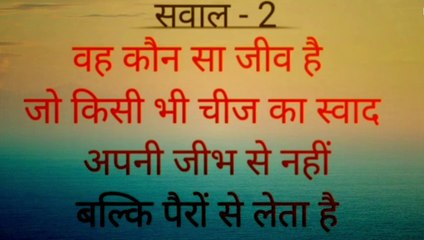 सवाल - 2
वह कौन सा जीव है
जो किसी भी चीज का स्वाद
अपनी जीभ से नहीं
बल्कि पैरों से लेता है